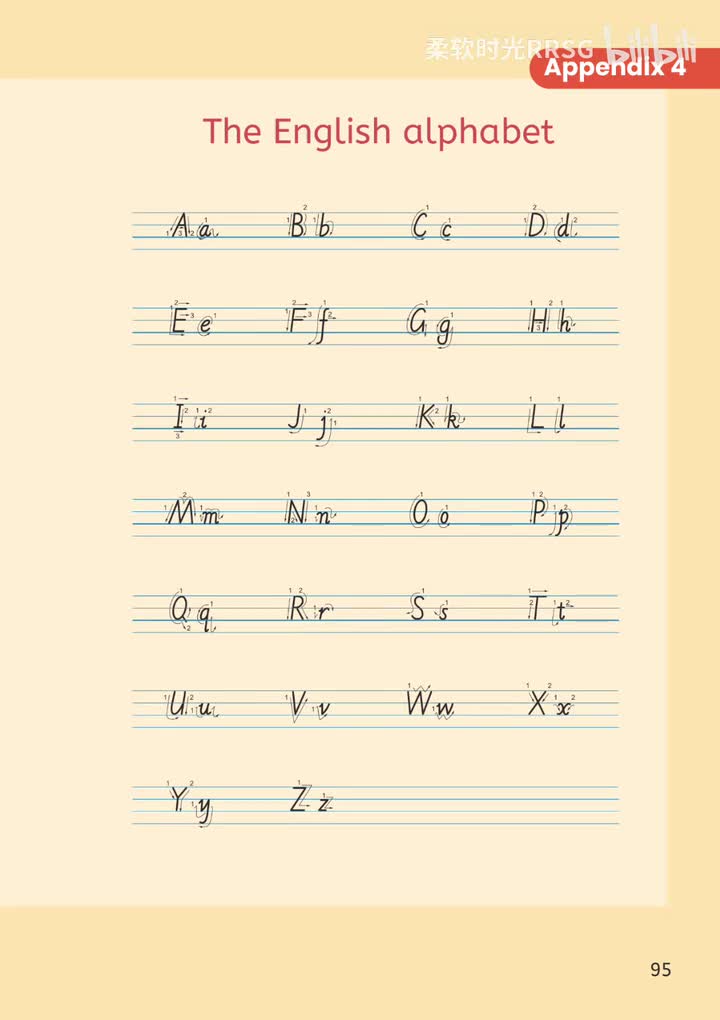 柔软时光RRSG bilibili
Appendix 4
The English alphabet
A a B b C c D d
E e F f G g H h
I i J j K k L l
M m N n O o P p
Q q R r S s T t
U u V v W w X x
Y y Z z
95